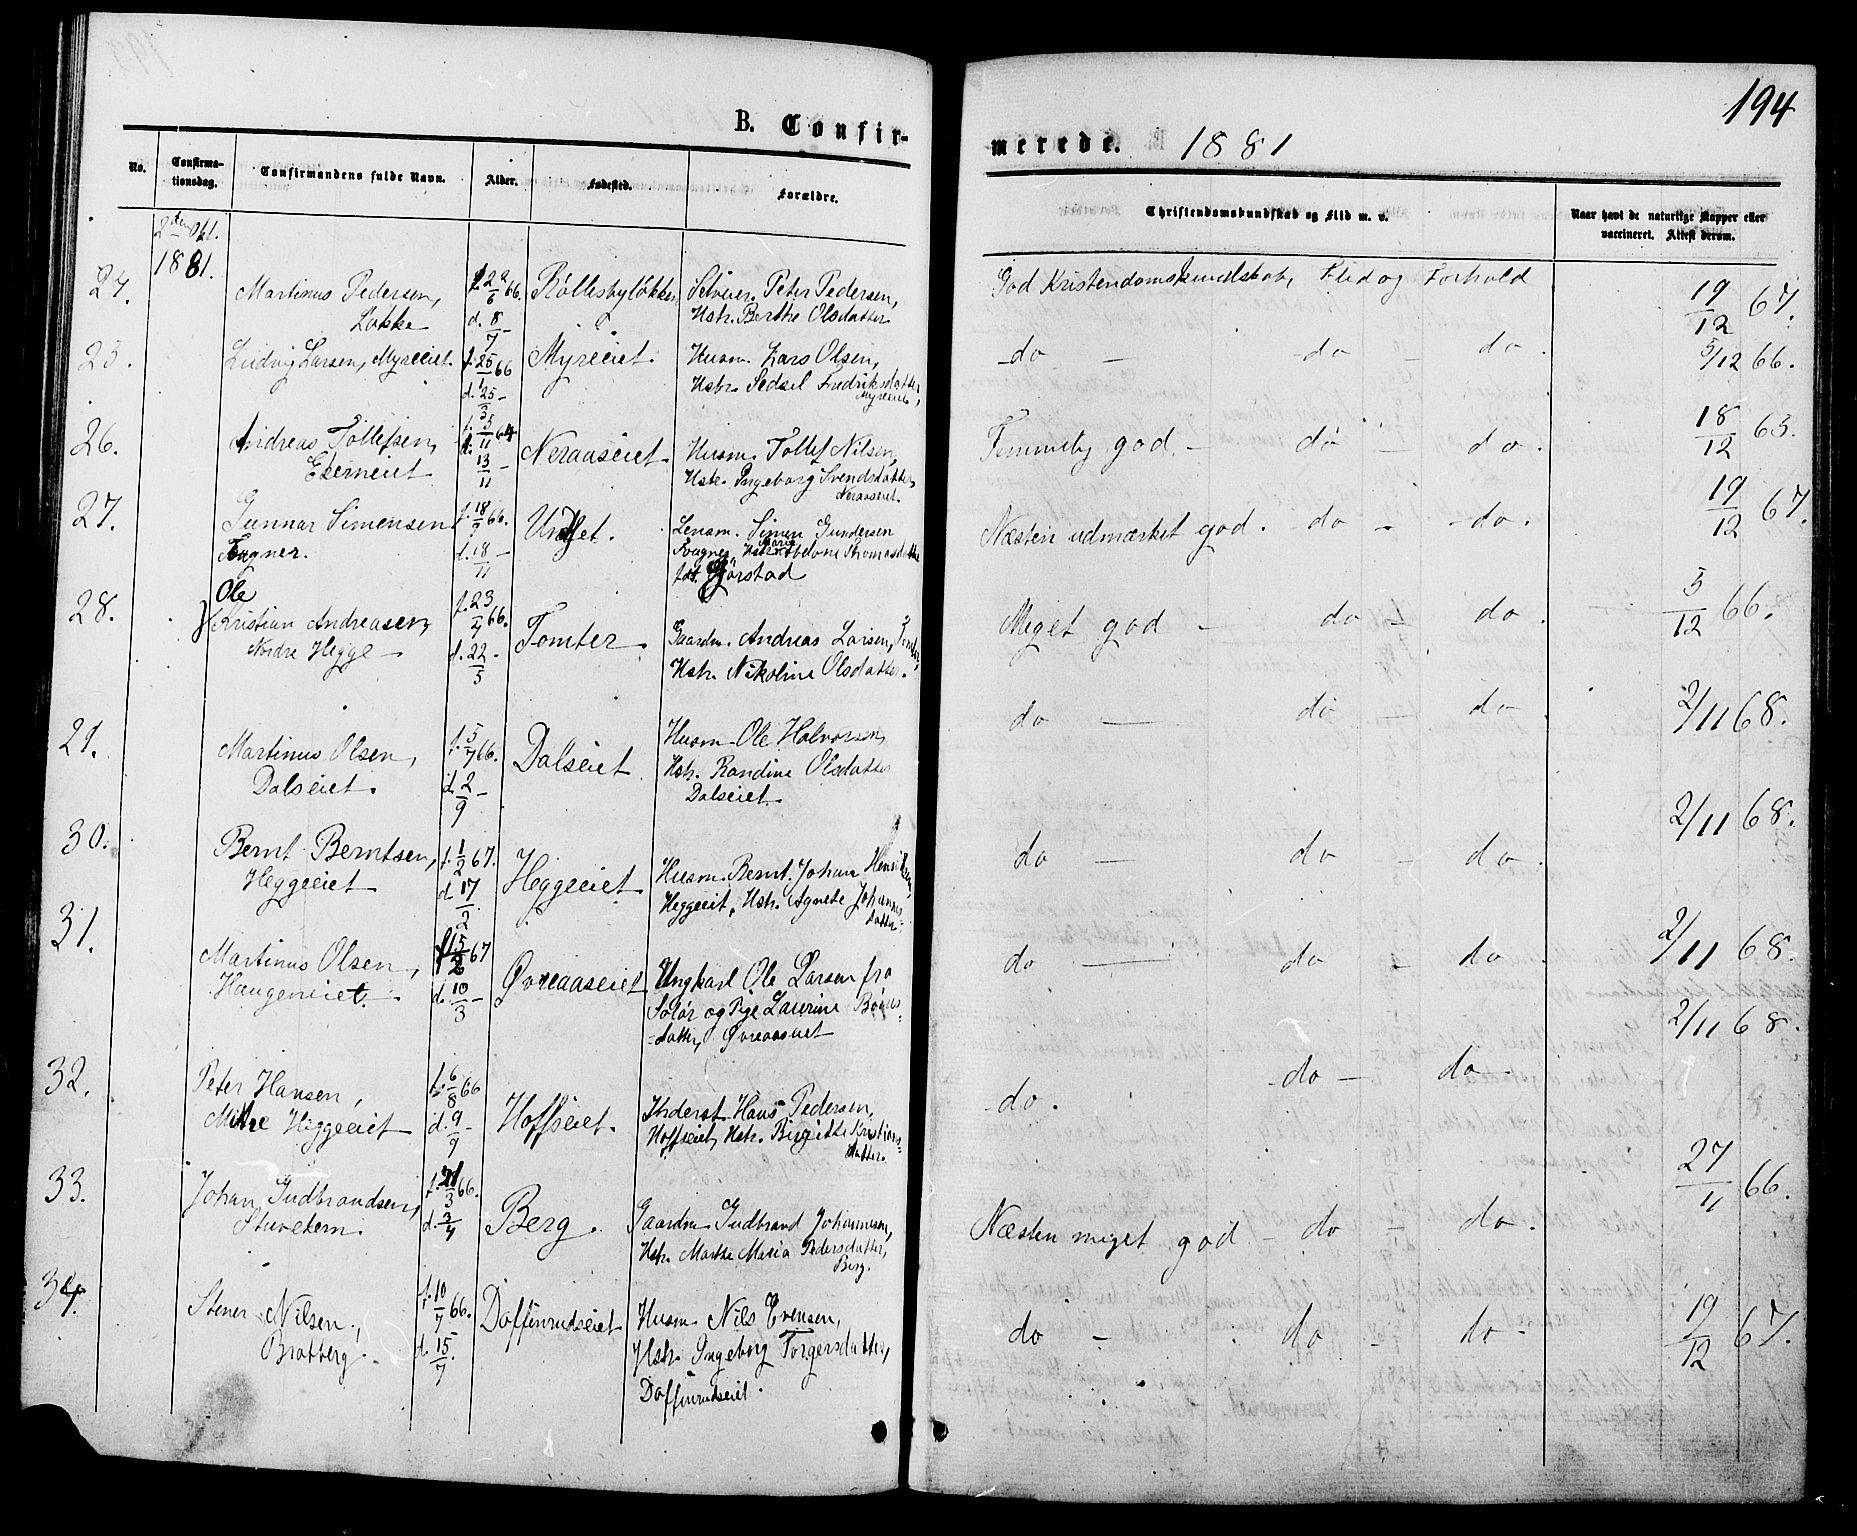 194
B. Confir-
merede. 1881
No.
Confirma-
tionsdag.
Confirmandens fulde Navn.
Alder.
Fødested.
Forældre.
Christendomskundskab og Flid m. v.
Naar havt de naturlige Kopper eller
vaccineret. Attest derom.
2den Okt.
1881.
24.
Martinus Pedersen,
Løkke
f. 22/6 66.
d. 8/7 -
Röllesbyløkken
Selveier Peter Pedersen,
Hstr. Berthe Olsdatter
God Kristendomskundskab, Flid og Forhold
19/12 67.
25.
Ludvig Larsen, Myreeiet.
f. 25/1 66
d. 25/3 -
Myreeiet.
Husm. Lars Olsen,
Hstr. Sedsel Fredriksdatter,
Myreeiet
do — do — do.
5/12 66.
26.
Andreas Tollefsen,
Ekerneiet
f. 5/11 64
d. 13/11 -
Neraaseiet
Husm. Tollef Nilsen,
Hstr. Ingeborg Svendsdatter,
Neraaseiet.
Temmelig god - do - do.
18/12 63.
27.
Gunnar Simensen
Fougner.
f. 18/9 66.
d. 18/11 -
Lensm. Simen Gundersen
Fougner, Hstr. Marie Abelone Thomasdatter
fdt. Gjörstad
Næsten udmærket god. do - do.
19/12 67.
28.
Ole
Kristian Andreasen,
Nordre Hegge
f. 23/4 66.
d. 22/5 -
Tomter
Gaardm. Andreas Larsen, Tomter,
Hstr. Nikoline Olsdatter.
Meget god - do - do.
5/12 66.
29.
Martinus Olsen,
Dalseiet.
f. 5/7 66.
d. 2/9 -
Dalseiet
Husm. Ole Halvorsen
Hstr. Randine Olsdatter
Dalseiet.
do — do - do
2/11 68.
30.
Bernt Berntsen,
Heggeeiet
f. 1/2 67.
d. 17/2.
Heggeeiet
Husm. Bernt Johan Henriksen,
Heggeeit, Hstr. Agnete Johannes-
datter
do — do - do.
2/11 68.
31.
Martinus Olsen,
Haugeneiet.
f. 15/2 67
d. 10/3 -
Øvreaaseiet
Ungkarl Ole Larsen fra
Solør og Pige Laurine
-datter, Øvreaaseiet
do — do - do.
2/11 68.
32.
Peter Hansen,
Mitre Heggeeiet
f. 6/8 66
d. 9/9 -
Hoffseiet.
Inderst Hans Pedersen,
Hoffseiet, Hstr. Birgitte Kristians-
datter.
do. do — do -
2/11 68.
33.
Johan Gudbrandsen,
Stuvekern.
f. 21/3 66.
d. 3/4
Berg.
Gaardm. Gudbrand Johannesen,
Hstr. Marthe Maria Pedersdatter,
Berg.
Næsten meget god - do - do.
27/11 66.
34.
Stener Nilsen,
Bratberg.
f. 10/7 66.
d. 15/7.
Doffinrudseiet
Husm. Nils Evensen,
Hstr. Ingeborg Torgersdatter,
Doffinrudseiet.
do - do - do -
19/12 67.